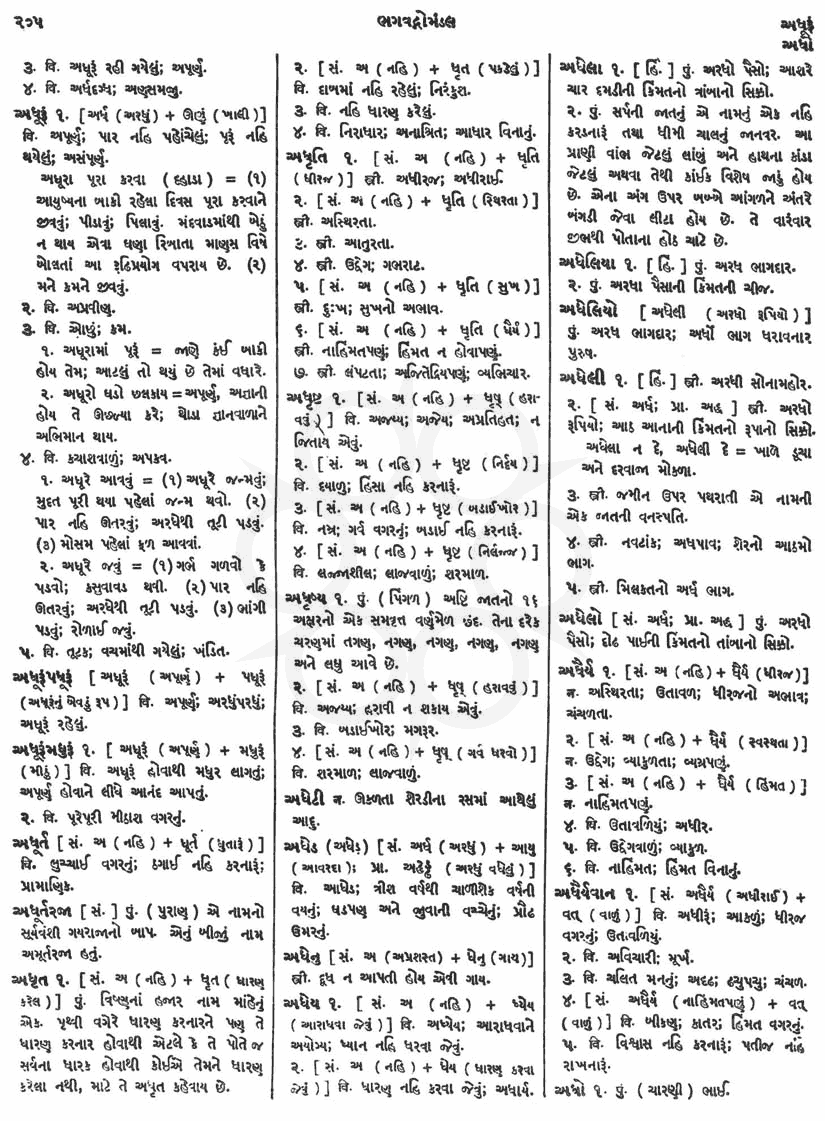 ૨૭૫
ભગવદ્ગોમંડલ
અધૂરૂં
અધો
૩. વિ. અધૂરૂં રહી ગયેલું; અપૂર્ણ.
૪. વિ. અર્ધદગ્ધ; અણસમજુ.
અધૂરૂં ૧. [ અર્ધ (અરધું) + ઊણું (ખાલી) ]
વિ. અપૂર્ણ; પાર નહિ પહોંચેલું; પૂરૂં નહિ
થયેલું; અસંપૂર્ણ.
અધૂરા પૂરા કરવા (દહાડા) = (૧)
આયુષ્યના બાકી રહેલા દિવસ પૂરા કરવાને
જીવવું; પીડાવું; પિલાવું. મંદવાડમાંથી બેઠું
ન થાય એવા ઘણા રિબાતા માણસ વિષે
બોલતાં આ રૂઢિપ્રયોગ વપરાય છે. (૨)
મને કમને જીવવું.
૨. વિ. અપ્રવીણ.
૩. વિ. ઓછું; કમ.
૧. અધૂરામાં પૂરૂં = જાણે કંઈ બાકી
હોય તેમ; આટલું તો થયું છે તેમાં વધારે.
૨. અધૂરો ઘડો છલકાય = અપૂર્ણ, અજ્ઞાની
હોય તે ઊછળ્યા કરે; થોડા જ્ઞાનવાળાને
અભિમાન થાય.
૪. વિ. કચાશવાળું; અપકવ.
૧. અધૂરે આવવું = (૧) અધૂરે જન્મવું;
મુદત પૂરી થયા પહેલાં જન્મ થવો. (૨)
પાર નહિ ઊતરવું; અરધેથી તૂટી પડવું.
(૩) મોસમ પહેલાં ફળ આવવાં.
૨. અધૂરે જવું = (૧) ગર્ભ ગળવો કે
પડવો; કસુવાવડ થવી. (૨) પાર નહિ
ઊતરવું; અરધેથી તૂટી પડવું. (૩) ભાંગી
પડવું; રોળાઈ જવું.
૫. વિ. તૂટક; વચમાંથી ગયેલું; ખંડિત.
અધૂરૂંપધૂરૂં [ અધૂરૂં (અપૂર્ણ) + પધૂરૂં
(અધૂરૂંનું બેવડું રૂપ) ] વિ. અપૂર્ણ; અરધુંપરધું;
અધૂરૂં રહેલું.
અધૂરૂંમધુરૂં ૧. [ અધૂરૂં (અપૂર્ણ) + મધુરૂં
(મીઠું) ] વિ. અધૂરૂં હોવાથી મધુર લાગતું;
અપૂર્ણ હોવાને લીધે આનંદ આપતું.
૨. વિ. પૂરેપૂરી મીઠાશ વગરનું.
અધૂર્ત [ સં. અ (નહિ) + ધૂર્ત (ધુતારૂં) ]
વિ. લુચ્ચાઈ વગરનું; ઠગાઈ નહિ કરનારૂં;
પ્રામાણિક.
અધૂર્તરજા [ સં. ] પું. (પુરાણ) એ નામનો
સૂર્યવંશી ગયરાજાનો બાપ. એનું બીજું નામ
અમૂર્તરજા હતું.
અધૃત ૧. [ સં. અ (નહિ) + ધૃત ( ધારણ
કરેલ ) ] પું. વિષ્ણુનાં હજાર નામ માંહેનું
એક. પૃથ્વી વગેરે ધારણ કરનારને પણ તે
ધારણ કરનાર હોવાથી એટલે કે તે પોતે જ
સર્વના ધારક હોવાથી કોઈએ તેમને ધારણ
કરેલા નથી, માટે તે અધૃત કહેવાય છે.
૨. [ સં. અ (નહિ) + ધૃત (પકડેલું) ]
વિ. દાબમાં નહિ રહેલું; નિરંકુશ.
૩. વિ. નહિ ધારણ કરેલું.
૪. વિ. નિરાધાર; અનાશ્રિત; આધાર વિનાનું.
અધૃતિ ૧. [ સં. અ (નહિ) + ધૃતિ
(ધીરજ) ] સ્ત્રી. અધીરજ; અધીરાઈ.
૨. [ સં. અ (નહિ) + ધૃતિ (સ્થિરતા) ]
સ્ત્રી. અસ્થિરતા.
૩. સ્ત્રી. આતુરતા.
૪. સ્ત્રી. ઉદ્વેગ; ગભરાટ.
૫. [ સં. અ (નહિ) + ધૃતિ (સુખ) ]
સ્ત્રી. દુઃખ; સુખનો અભાવ.
૬. [ સં. અ (નહિ) + ધૃતિ (ધૈર્ય) ]
સ્ત્રી. નાહિંમતપણું; હિંમત ન હોવાપણું.
૭. સ્ત્રી. લંપટતા; અજિતેંદ્રિયપણું; વ્યભિચાર.
અધૃષ્ટ ૧. [ સં. અ (નહિ) + ધૃષ્ (હરા-
વવું) ] વિ. અજય્ય; અજેય; અપ્રતિહત; ન
જિતાય એવું.
૨. [ સં. અ (નહિ) + ધૃષ્ટ (નિર્દય) ]
વિ. દયાળુ; હિંસા નહિ કરનારૂં.
૩. [ સં. અ (નહિ) + ધૃષ્ટ (બડાઈખોર) ]
વિ. નમ્ર; ગર્વ વગરનું; બડાઈ નહિ કરનારૂં.
૪. [ સં. અ (નહિ) + ધૃષ્ટ (નિર્લજ્જ) ]
વિ. લજ્જાશીલ; લાજવાળું; શરમાળ.
અધૃષ્ય ૧. પું. (પિંગળ) અષ્ટિ જાતનો ૧૬
અક્ષરનો એક સમવૃત્ત વર્ણમેળ છંદ. તેના દરેક
ચરણમાં તગણ, નગણ, નગણ, નગણ, નગણ
અને લઘુ આવે છે.
૨. [ સં. અ (નહિ) + ધૃષ્ (હરાવવું) ]
વિ. અજય્ય; હરાવી ન શકાય એવું.
૩. વિ. બડાઈખોર; મગરૂર.
૪. [ સં. અ (નહિ) + ધૃષ્ (ગર્વ ધરવો) ]
વિ. શરમાળ; લાજવાળું.
અધેટી ન. ઊકળતા શેરડીના રસમાં આથેલું
આદુ.
અધેડ (અધેડ) [ સં. અર્ધ (અરધું) + આયુ
(આવરદા); પ્રા. અઢેડ્ઢ (અરધું વધેલું) ]
વિ. આધેડ; ત્રીશ વર્ષથી ચાળીશેક વર્ષની
વયનું; ઘડપણ અને જુવાની વચ્ચેનું; પ્રૌઢ
ઉમરનું.
અધેનુ [ સં. અ (અપ્રશસ્ત) + ધેનુ (ગાય) ]
સ્ત્રી. દૂધ ન આપતી હોય એવી ગાય.
અધેય ૧. [ સં. અ (નહિ) + ધ્યેય
(આરાધવા જેવું) ] વિ. અધ્યેય; આરાધવાને
અયોગ્ય; ધ્યાન નહિ ધરવા જેવું.
૨. [ સં. અ (નહિ) + ધેય (ધારણ કરવા
જેવું) ] વિ. ધારણ નહિ કરવા જેવું; અધાર્ય.
અધેલા ૧. [ હિં. ] પું. અરધો પૈસો; આશરે
ચાર દમડીની કિંમતનો ત્રાંબાનો સિક્કો.
૨. પું. સર્પની જાતનું એ નામનું એક નહિ
કરડનારૂં તથા ધીમી ચાલનું જાનવર. આ
પ્રાણી વાંભ જેટલું લાંબું અને હાથના કાંડા
જેટલું અથવા તેથી કાંઈક વિશેષ જાડું હોય
છે. એના અંગ ઉપર બબ્બે આંગળને અંતરે
બંગડી જેવા લીટા હોય છે. તે વારંવાર
જીભથી પોતાના હોઠ ચાટે છે.
અધેલિયા ૧. [ હિં. ] પું. અરધ ભાગદાર.
૨. પું. અરધા પૈસાની કિંમતની ચીજ.
અધેલિયો [ અધેલી (અરધો રૂપિયો) ]
પું. અરધ ભાગદાર; અર્ધો ભાગ ધરાવનાર
પુરુષ.
અધેલી ૧. [ હિં. ] સ્ત્રી. અરધી સોનામહોર.
૨. [ સં. અર્ધ; પ્રા. અદ્ધ ] સ્ત્રી. અરધો
રૂપિયો; આઠ આનાની કિંમતનો રૂપાનો સિક્કો.
અધેલા ન દે, અધેલી દે = ખાળે ડૂચા
અને દરવાજા મોકળા.
૩. સ્ત્રી. જમીન ઉપર પથરાતી એ નામની
એક જાતની વનસ્પતિ.
૪. સ્ત્રી. નવટાંક; અધપાવ; શેરનો આઠમો
ભાગ.
૫. સ્ત્રી. મિલકતનો અર્ધ ભાગ.
અધેલો [ સં. અર્ધ; પ્રા. અદ્ધ ] પું. અરધો
પૈસો; દોઢ પાઈની કિંમતનો તાંબાનો સિક્કો.
અધૈર્ય ૧. [ સં. અ (નહિ) + ધૈર્ય (ધીરજ) ]
ન. અસ્થિરતા; ઉતાવળ; ધીરજનો અભાવ;
ચંચળતા.
૨. [ સં. અ (નહિ) + ધૈર્ય (સ્વસ્થતા) ]
ન. ઉદ્વેગ; વ્યાકુળતા; વ્યગ્રપણું.
૩. [ સં. અ (નહિ) + ધૈર્ય (હિંમત) ]
ન. નાહિંમતપણું.
૪. વિ. ઉતાવળિયું; અધીર.
૫. વિ. ઉદ્વેગવાળું; વ્યાકુળ.
૬. વિ. નાહિંમત; હિંમત વિનાનું.
અધૈર્યવાન ૧. [ સં. અધૈર્ય (અધીરાઈ) +
વત્ (વાળું) ] વિ. અધીરૂં; આકળું; ધીરજ
વગરનું; ઉતાવળિયું.
૨. વિ. અવિચારી; મૂર્ખ.
૩. વિ. ચલિત મનનું; અદૃઢ; ઢચુપચુ; ચંચળ.
૪. [ સં. અધૈર્ય (નાહિંમતપણું) + વત્
(વાળું) ] વિ. બીકણ; કાતર; હિંમત વગરનું.
૫. વિ. વિશ્વાસ નહિ કરનારૂં; પતીજ નહિ
રાખનારૂં.
અધો ૧. પું. (ચારણી) ભાઈ.